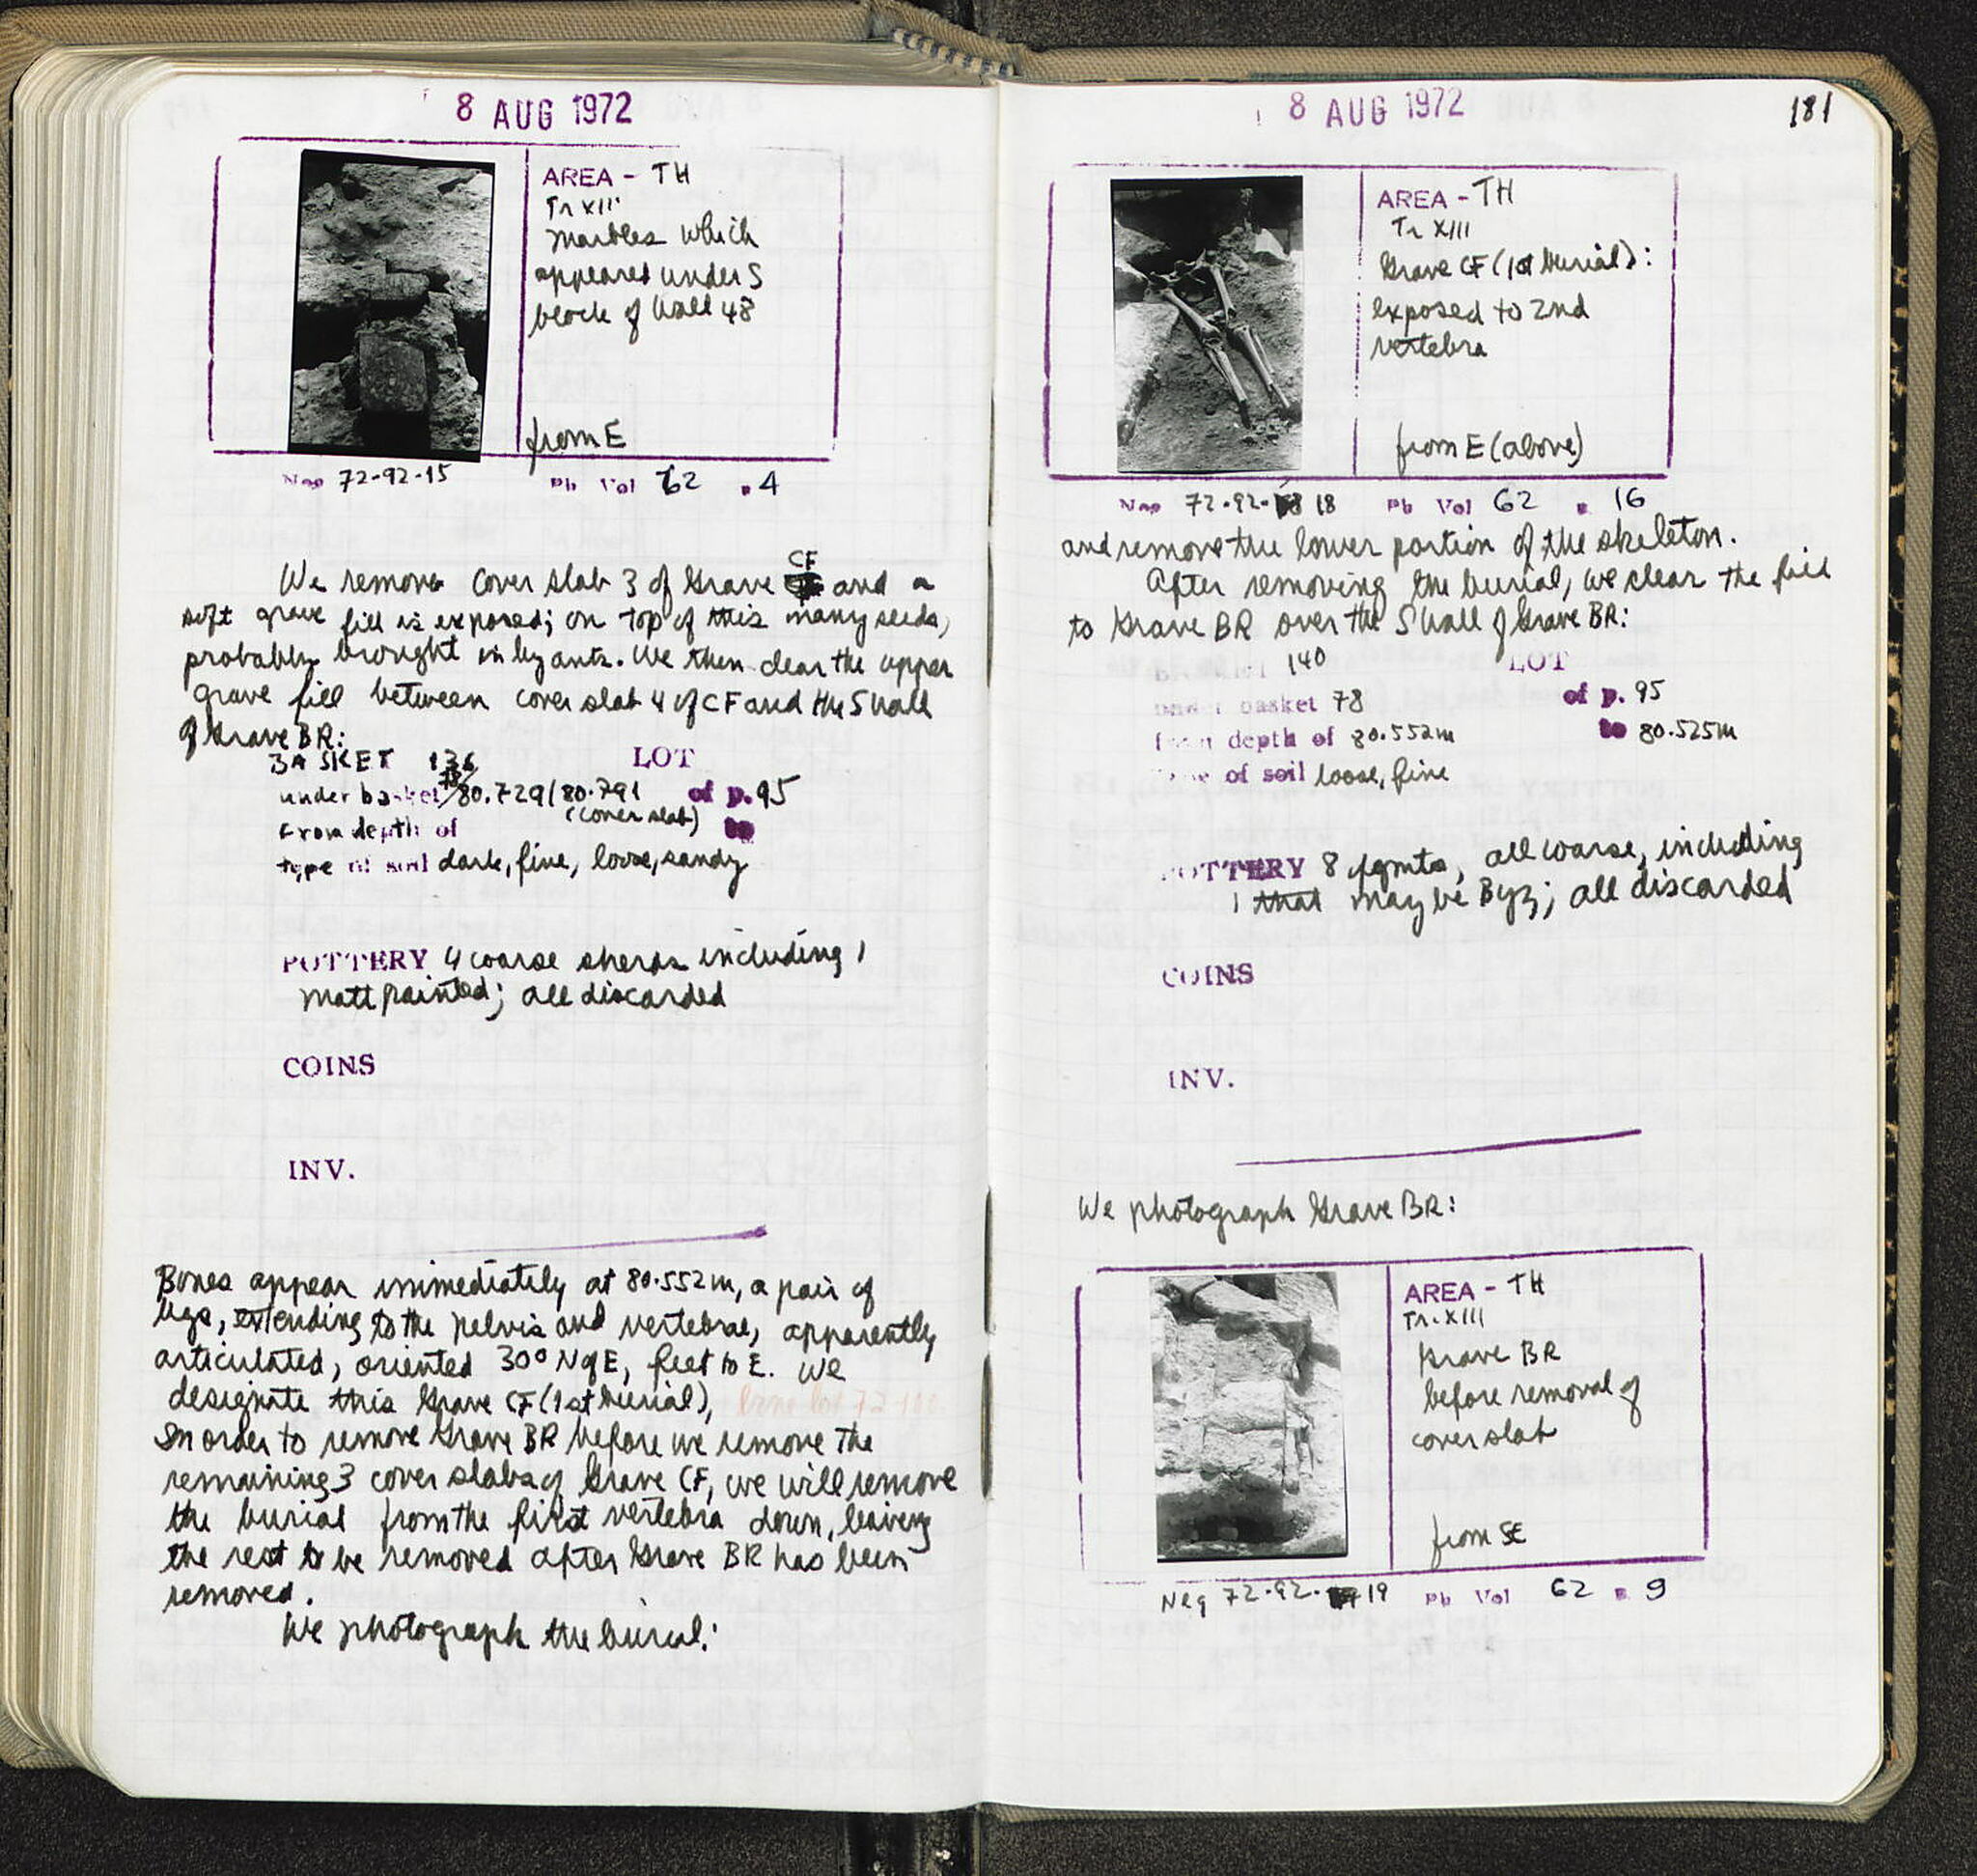 8 AUG 1972
AREA - TH
Tr XIII
Marbles which
appeared under S
block of Wall 48
from E
Neg 72-92-15 Pb Vol 62 p. 4
We remove cover slab 3 of Grave CF and a
soft grave fill is exposed; on top of this many seeds,
probably brought in by ants. We then clear the upper
grave fill between cover slab 4 of CF and the S wall
of Grave BR:
BASKET 136 LOT
under basket 80.729/80.791 of p. 95
(cover slab)
From depth of to
type of soil dark, fine, loose, sandy
POTTERY 4 coarse sherds including 1
matt painted; all discarded
COINS
INV.
Bones appear immediately at 80.552m, a pair of
legs, extending to the pelvis and vertebrae, apparently
articulated, oriented 30° N of E, feet to E. We
designate this Grave CF (1st burial), bone lot 72-100.
In order to remove Grave BR before we remove the
remaining 3 cover slabs of Grave CF, we will remove
the burial from the first vertebra down, leaving
the rest to be removed after Grave BR has been
removed.
We photograph the burial:
8 AUG 1972
181
AREA - TH
Tr XIII
Grave CF (1st burial):
exposed to 2nd
vertebra
from E (above)
Neg 72-92-18 Pb Vol 62 p. 16
and remove the lower portion of the skeleton.
After removing the burial, we clear the fill
to Grave BR over the S wall of Grave BR:
140 LOT
under basket 78 of p. 95
from depth of 80.552m to 80.525m
type of soil loose, fine
POTTERY 8 fgmts, all coarse, including
1 that may be Byz; all discarded
COINS
INV.
We photograph Grave BR:
AREA - TH
Tr. XIII
Grave BR
before removal of
cover slab
from SE
Neg 72-92-19 Pb Vol 62 p. 9